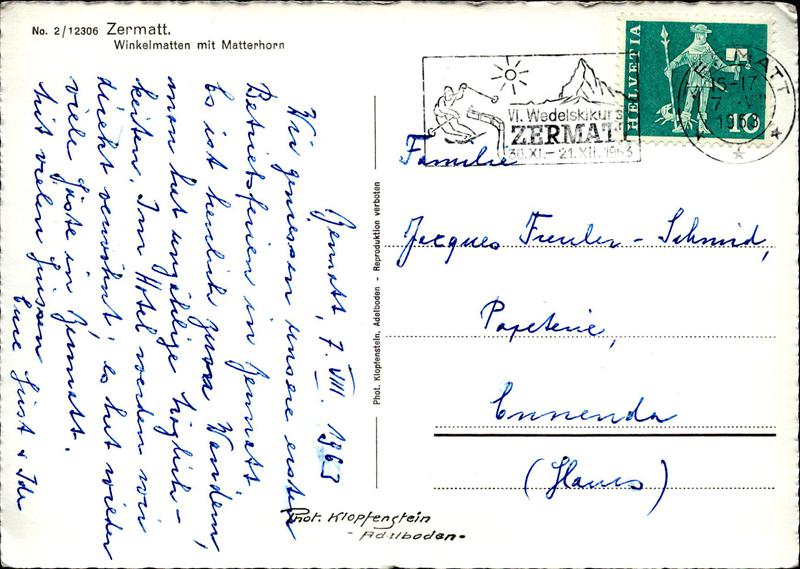 No. 2/12306 Zermatt.
Winkelmatten mit Matterhorn
Zermatt, 7. VIII. 1963
Wir geniessen unsere ersten
Betriebsferien in Zermatt
Es ist herrlich zum Wandern,
man hat unzählige Möglich-
keiten. Im Hotel werden wir
direkt verwöhnt, es hat wieder
viele Gäste in Zermatt.
Mit vielen Grüssen
Eure Gust & Ida
Phot. Klopfenstein, Adelboden - Reproduktion verboten
VI. Wedelskikurs
ZERMATT
30.XI.–21.XII.1963
HELVETIA
10
ZERMATT
15-17
7. VIII
1963
Familie
Jacques Freuler-Schmid,
Papeterie,
Ennenda
(Glarus)
Phot. Klopfenstein
- Adelboden -